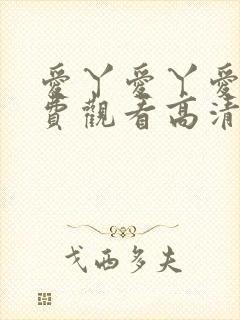 愛丫愛丫愛
費觀看高清
戈西多夫